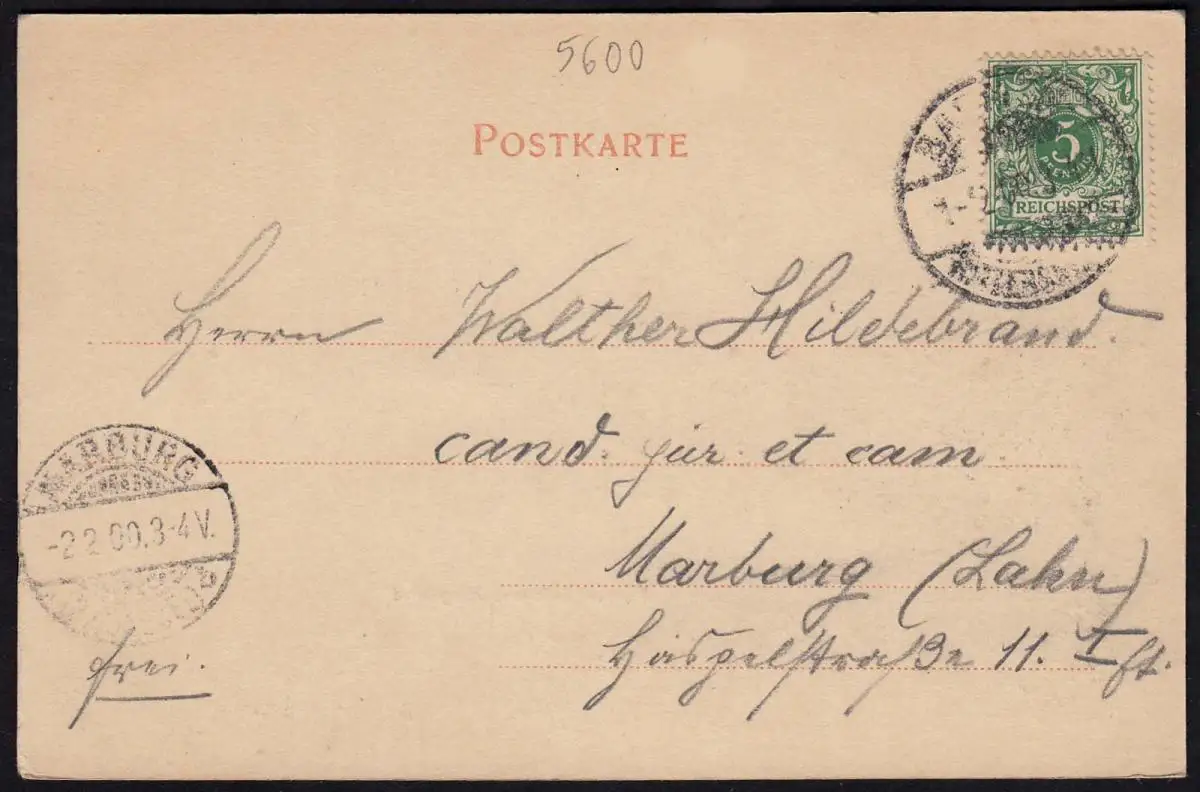 5600
POSTKARTE
5
PFENNIG
REICHSPOST
Herrn Walther Hildebrand.
cand. jur et cam
MARBURG
-2.2.00.3-4V.
Marburg (Lahn)
Haspelstraße 11. I
frei.